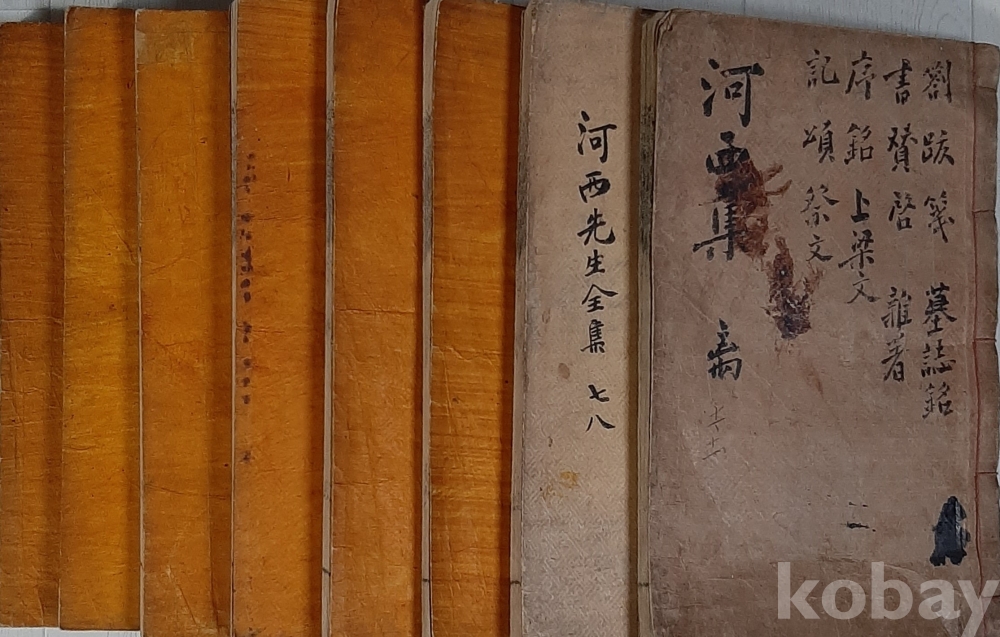 劄跋箋 墓誌銘
書贊啓 雜著
序銘上梁文
記頌祭文
二
河西集 离
河西先生全集 七八
kobay